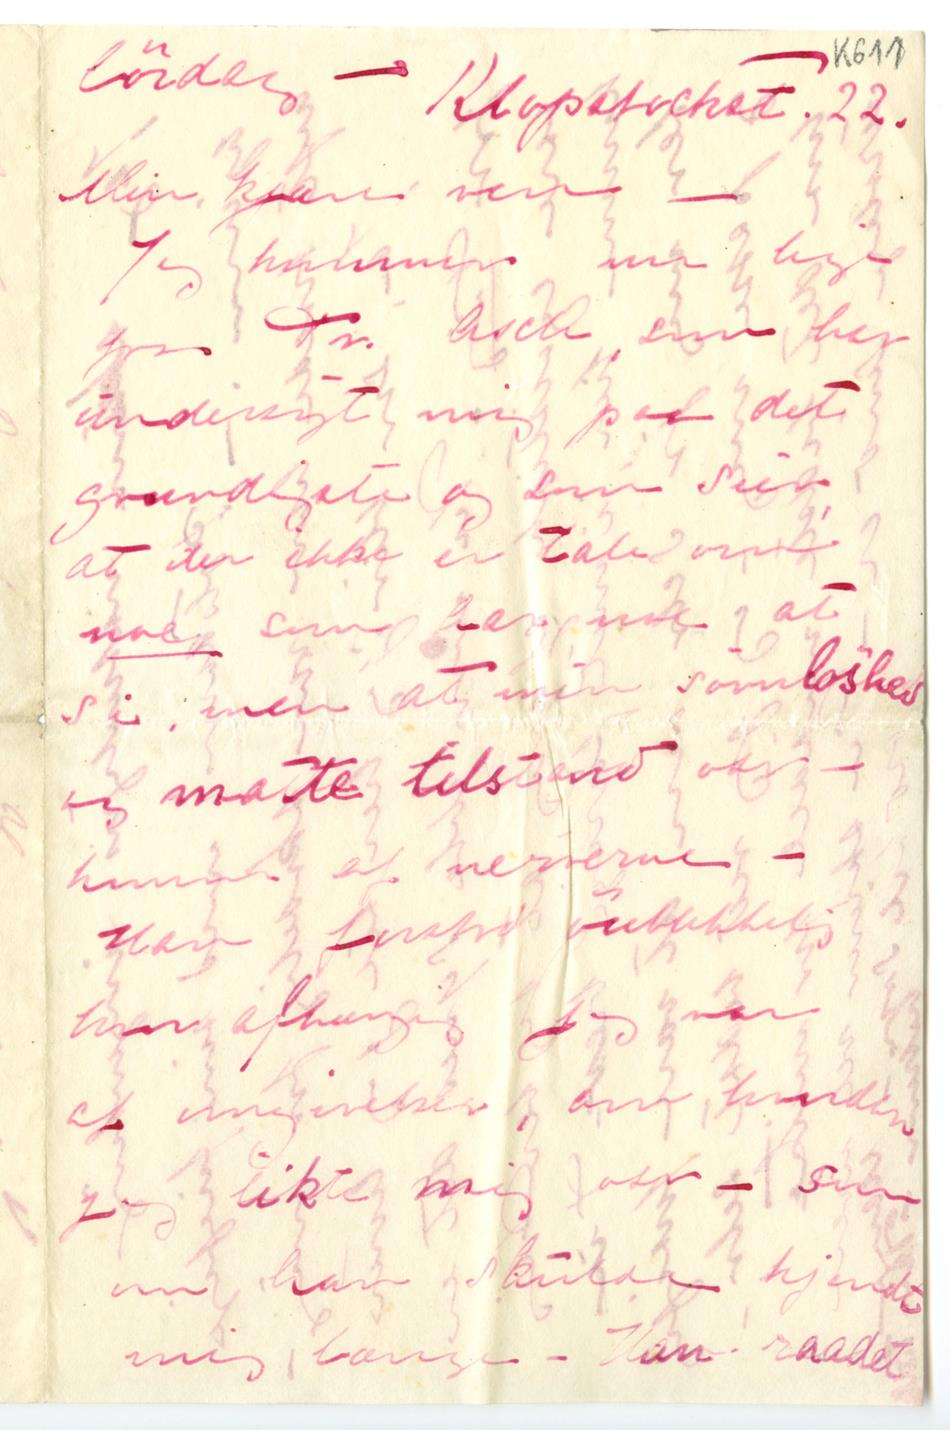 K611
Lördag — Klopstockst. 22.
Min kjære ven —
Jeg kommer nu lige
fra Dr. Asch, som har
undersøgt mig paa det
grundigste og som siger
at der ikke er Tale om
noe som har noe at
si, men at min sövnlöshed
og matte tilstand osv —
kommer af nerverne —
Han forstod öieblikkelig
hvor afhængig jeg var
af omgivelser, om hvordan
jeg likte mig osv — som
om han skulde kjendt
mig længe — Han raadet